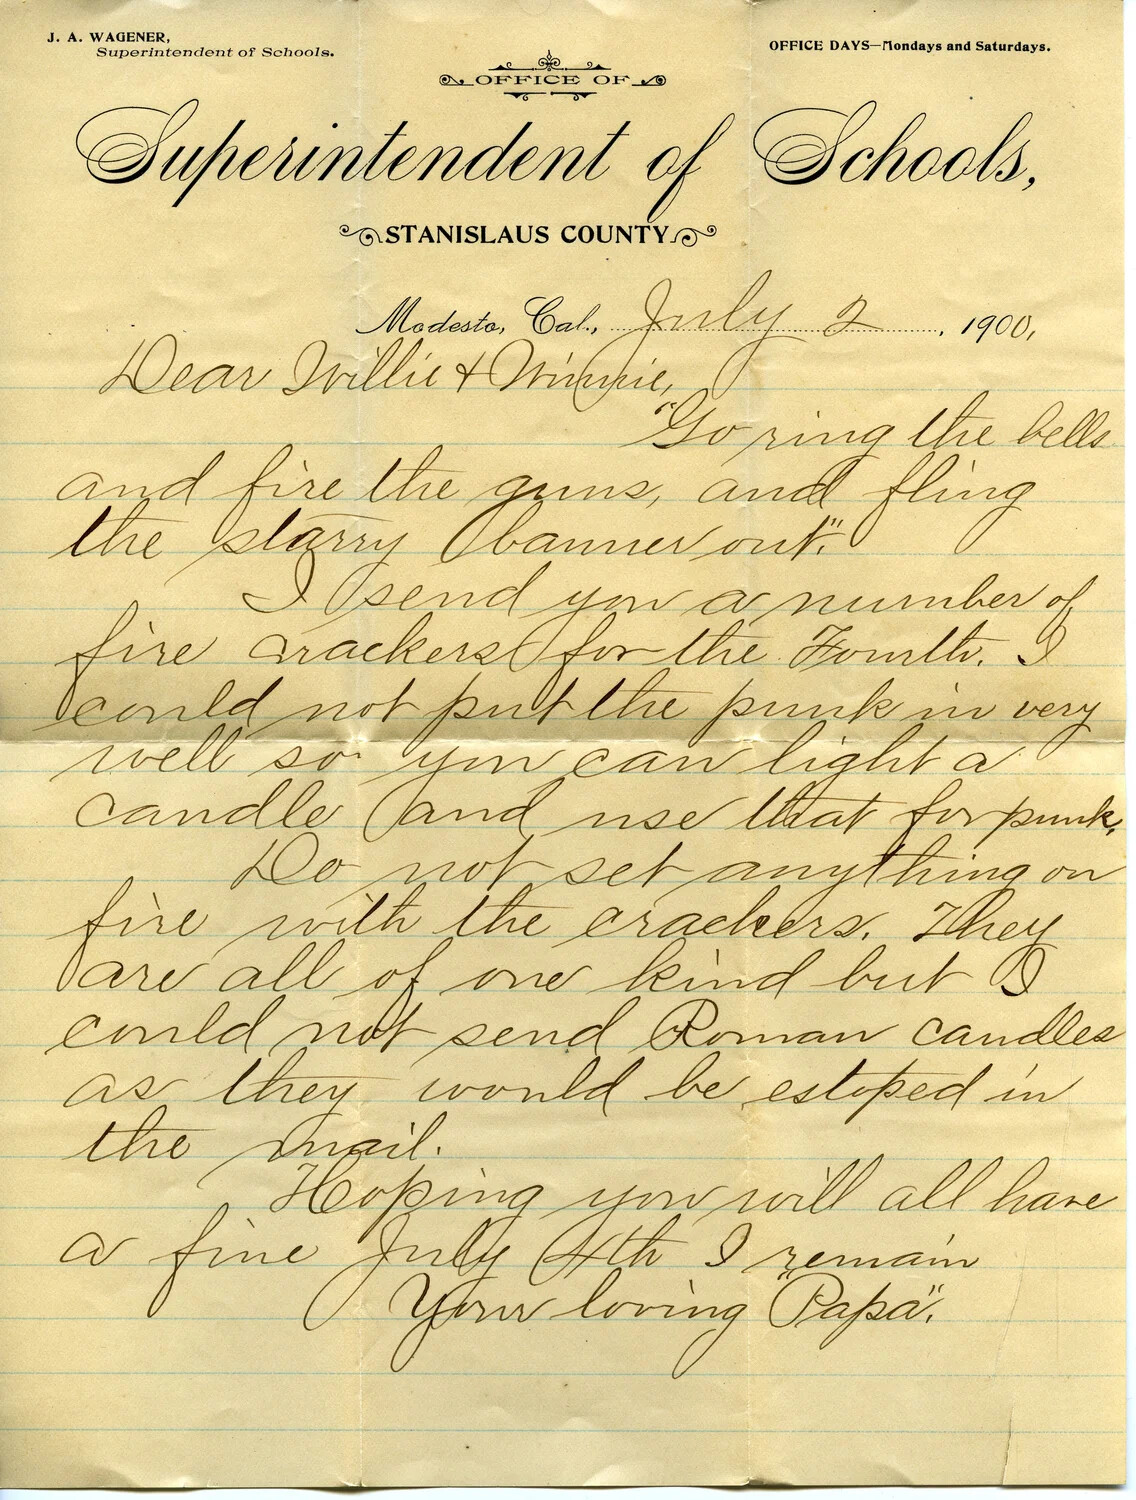 J. A. WAGENER,
Superintendent of Schools.
OFFICE DAYS—Mondays and Saturdays.
OFFICE OF
Superintendent of Schools,
STANISLAUS COUNTY
Modesto, Cal., July 2, 1900,
Dear Willie & Winnie,
"Go ring the bells
and fire the guns, and fling
the starry banner out."
I send you a number of
fire crackers for the Fourth. I
could not put the punk in very
well so you can light a
candle and use that for punk.
Do not set anything on
fire with the crackers. They
are all of one kind but I
could not send Roman candles
as they would be estoped in
the mail.
Hoping you will all have
a fine July 4th I remain
Your loving "Papa".